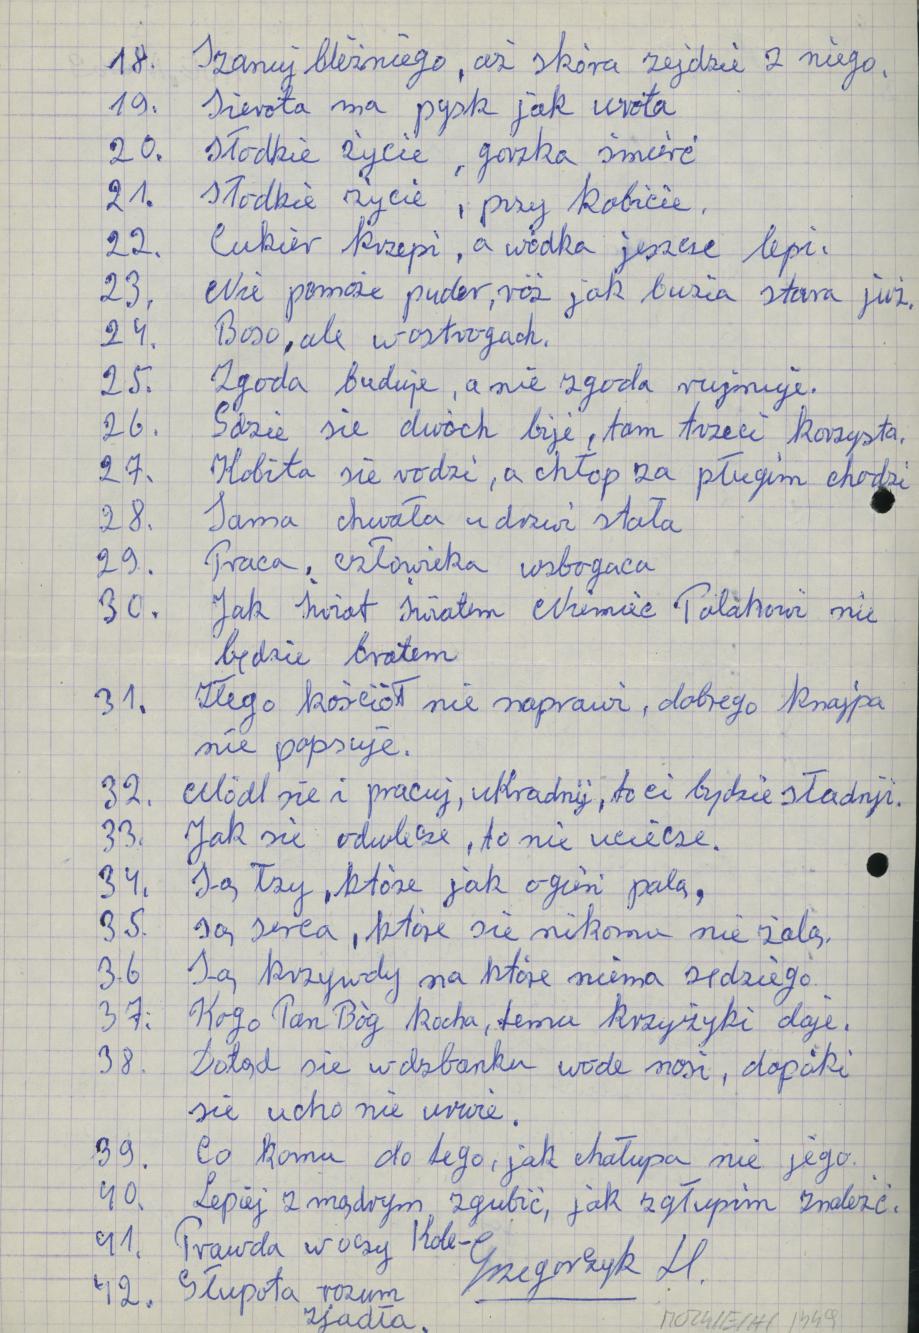 18. Szanuj bliźniego, aż skóra zejdzie z niego.
19. Sierota ma pysk jak wrota
20. Słodkie życie, gorzka śmierć
21. Słodkie życie, przy kobicie.
22. Cukier krzepi, a wódka jeszcze lepi.
23. Nie pomoże puder, róż jak buzia stara już.
24. Boso, ale w ostrogach.
25. Zgoda buduje, a nie zgoda rujnuje.
26. Gdzie sie dwóch bije, tam trzeci korzysta.
27. Kobita sie rodzi, a chłop za pługim chodzi
28. Sama chwała u drzwi stała
29. Praca, człowieka wzbogaca
30. Jak świat światem Niemiec Polakowi nie
będzie bratem
31. Złego kościół nie naprawi, dobrego knajpa
nie popsuje.
32. Módl sie i pracuj, ukradnij, to ci będzie sładnij.
33. Jak sie odwlecze, to nie uciecze.
34. Są łzy, które jak ogień palą,
35. są serca, które sie nikomu nie żalą.
36 Są krzywdy na które niema sędziego.
37. Kogo Pan Bóg kocha, temu krzyżyki daje.
38. Dotąd sie w dzbanku wode nosi, dopóki
sie ucho nie urwie.
39. Co komu do tego, jak chałupa nie jego.
40. Lepiej z mądrym zgubić, jak z głupim znaleźć.
41. Prawda w oczy Kole-
42. Głupota rozum
zjadła.
Grzegorzyk H.
1949